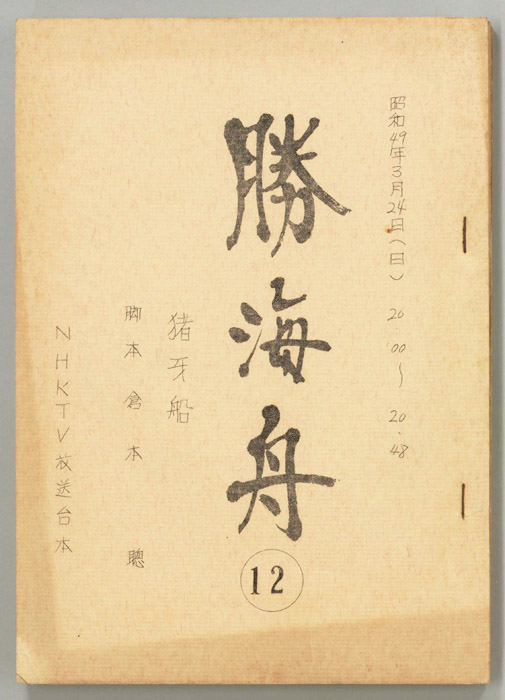 昭和49年3月24日(日) 20:00~20.48
勝海舟
12
猪牙船
脚本 倉本 聰
NHKTV放送台本